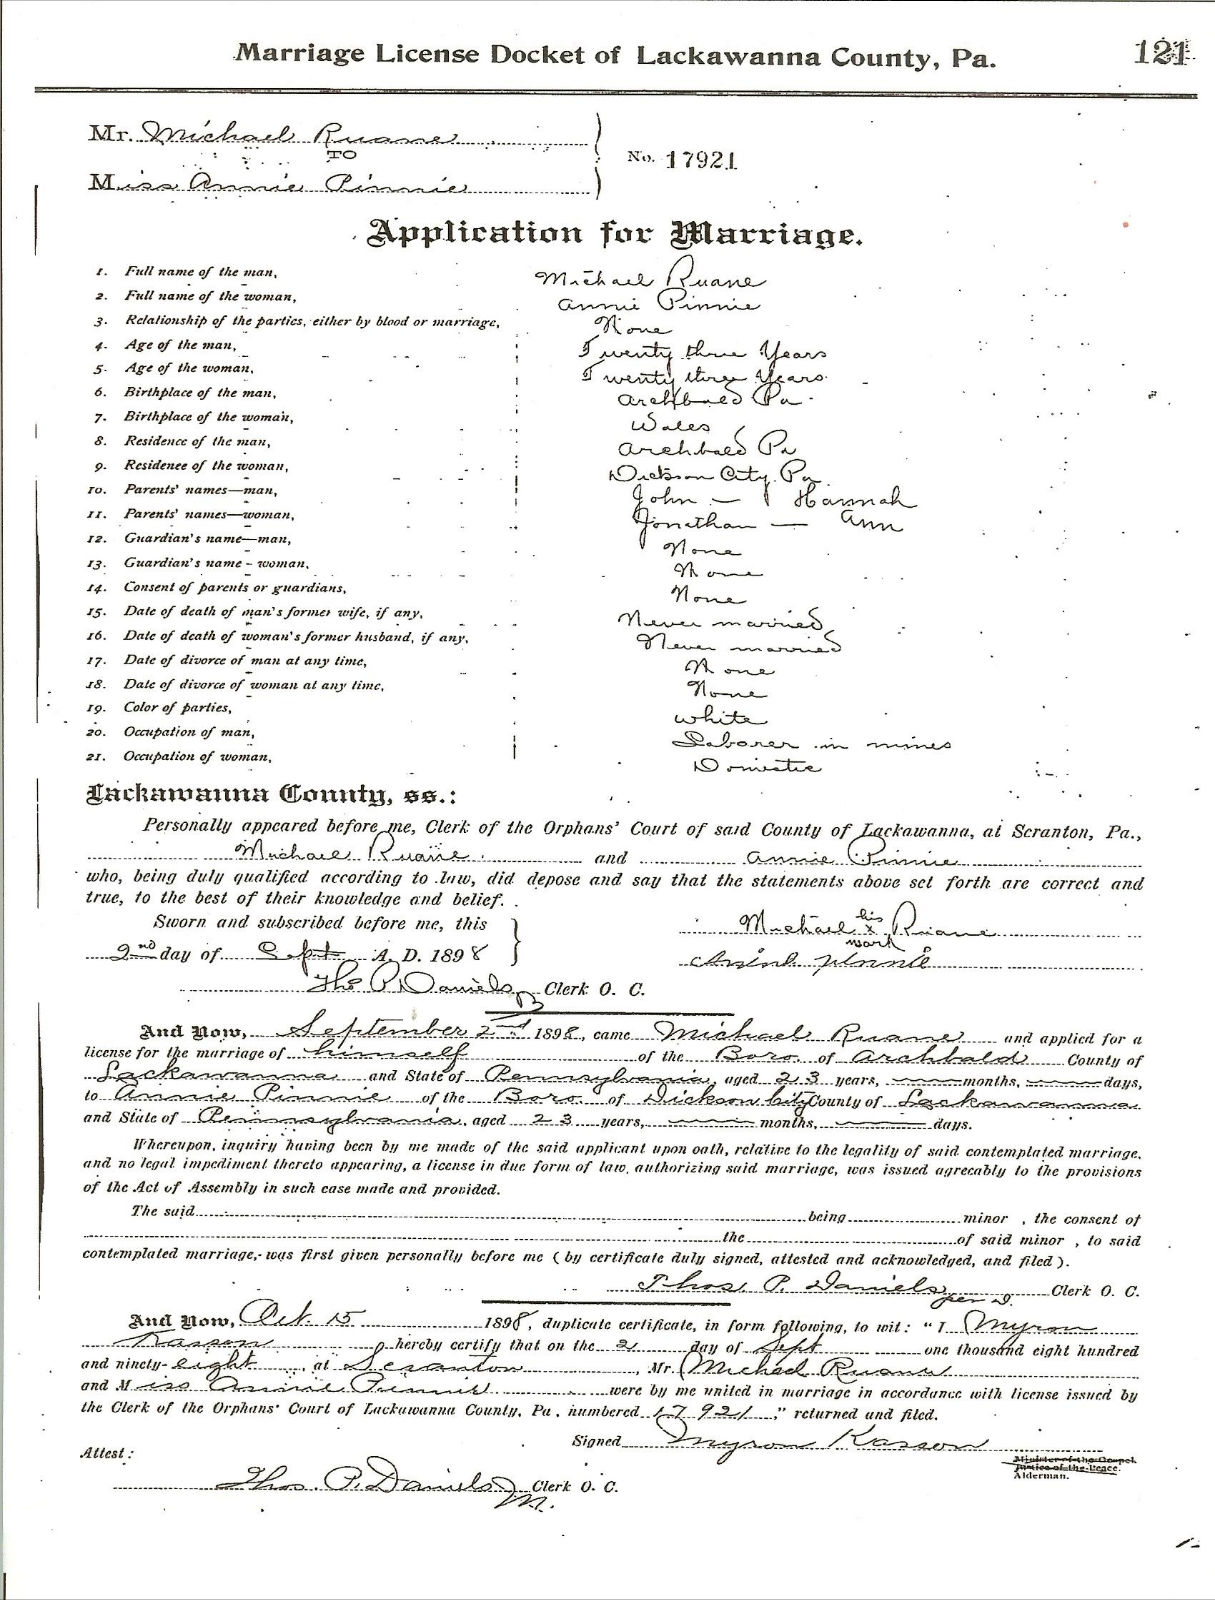 Marriage License Docket of Lackawanna County, Pa. 121
Mr. Michael Ruane
TO
No. 17921
Miss Annie Pinnie
Application for Marriage.
1. Full name of the man, Michael Ruane
2. Full name of the woman, Annie Pinnie
3. Relationship of the parties, either by blood or marriage, None
4. Age of the man, Twenty three Years
5. Age of the woman, Twenty three Years
6. Birthplace of the man, Archbald Pa.
7. Birthplace of the woman, Wales
8. Residence of the man, Archbald Pa
9. Residence of the woman, Dickson City Pa.
10. Parents' names—man, John — Hannah
11. Parents' names—woman, Jonathan — Ann
12. Guardian's name—man, None
13. Guardian's name - woman, None
14. Consent of parents or guardians, None
15. Date of death of man's former wife, if any, Never married
16. Date of death of woman's former husband, if any, Never married
17. Date of divorce of man at any time, None
18. Date of divorce of woman at any time, None
19. Color of parties, white
20. Occupation of man, Laborer in mines
21. Occupation of woman, Domestic
Lackawanna County, ss.:
Personally appeared before me, Clerk of the Orphans' Court of said County of Lackawanna, at Scranton, Pa.,
Michael Ruane and Annie Pinnie
who, being duly qualified according to law, did depose and say that the statements above set forth are correct and
true, to the best of their knowledge and belief.
Sworn and subscribed before me, this
Michael his x mark Ruane
2nd day of Sept A. D. 1898
Annie Pinnie
Tho P. Daniels Clerk O. C.
And Now, September 2nd 1898, came Michael Ruane and applied for a
license for the marriage of himself of the Boro of Archbald County of
Lackawanna and State of Pennsylvania, aged 23 years, —— months, —— days,
to Annie Pinnie of the Boro of Dickson City County of Lackawanna
and State of Pennsylvania, aged 23 years, —— months, —— days.
Whereupon, inquiry having been by me made of the said applicant upon oath, relative to the legality of said contemplated marriage,
and no legal impediment thereto appearing, a license in due form of law, authorizing said marriage, was issued agreeably to the provisions
of the Act of Assembly in such case made and provided.
The said being minor , the consent of
the of said minor , to said
contemplated marriage, was first given personally before me (by certificate duly signed, attested and acknowledged, and filed).
Thos. P. Daniels per D. Clerk O. C.
And Now, Oct. 15 1898, duplicate certificate, in form following, to wit: "I Myron
Kasson hereby certify that on the 2 day of Sept one thousand eight hundred
and ninety-eight, at Scranton, Mr. Michael Ruane
and Miss Annie Pinnie were by me united in marriage in accordance with license issued by
the Clerk of the Orphans' Court of Lackawanna County, Pa., numbered 17921," returned and filed.
Signed Myron Kasson
Attest:
Minister of the Gospel.
Justice of the Peace.
Alderman.
Thos. P. Daniels Clerk O. C.
M.